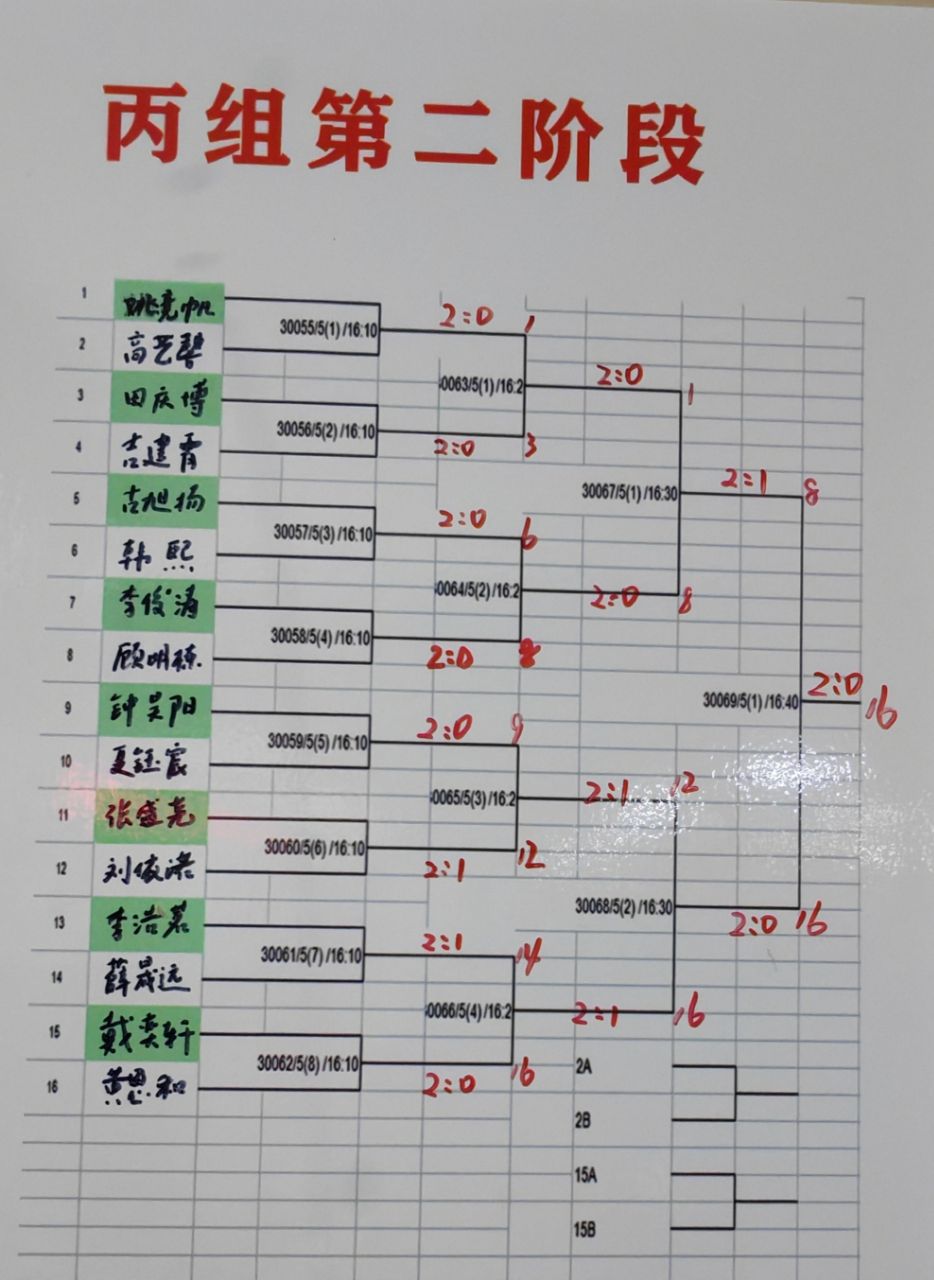 丙组第二阶段
1 姚竞帆
30055/5(1) /16:10 2:0 1
2 高艺
3 田庆博
0063/5(1) /16:2 2:0 1
30056/5(2) /16:10 2:0 3
4 吉建霄
30067/5(1) /16:30 2:1 8
5 吉旭扬
30057/5(3) /16:10 2:0 6
6 韩熙
0064/5(2) /16:2 2:0 8
7 李俊涛
30058/5(4) /16:10 2:0 8
8 顾明栋
30069/5(1) /16:40 2:0 16
9 钟昊阳
30059/5(5) /16:10 2:0 9
10 夏钰宸
0065/5(3) /16:2 2:1 12
11 张盛尧
30060/5(6) /16:10 2:1 12
12 刘俊
30068/5(2) /16:30 2:0 16
13 李浩茗
30061/5(7) /16:10 2:1 14
14 薛晟远
0066/5(4) /16:2 2:1 16
15 戴奕轩
30062/5(8) /16:10 2:0 16
16 黄思和
2A
2B
15A
15B